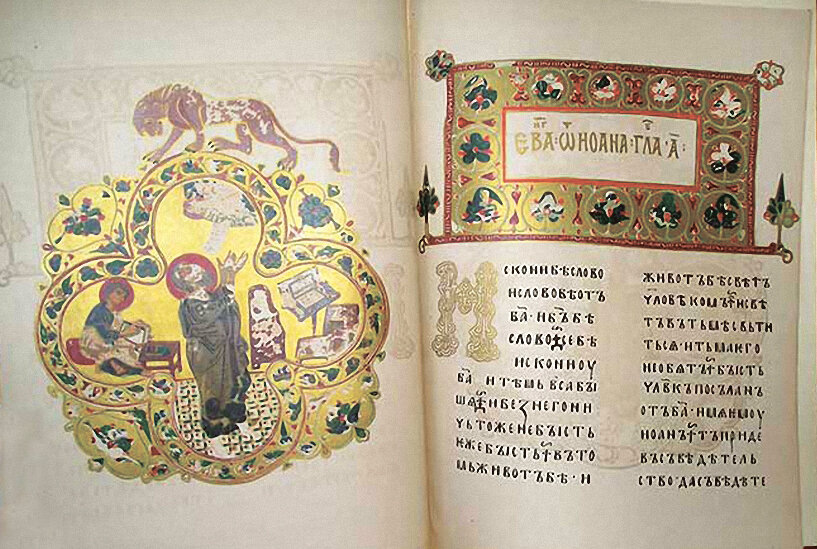 ЕВА҃Г · Ѿ ИОАНА · ГЛА · А҃ :
ИСКОНИБѢСЛОВО
ИСЛОВОБѢОТЪ
Б҃А · ИБ҃ЪБѢ
СЛОВО · СЕБѢ
ИСКОНИОУ
Б҃А · ИТѢМЬВСАБЫ
ШѦ · ИБЕЗНЕГОНИ
ЧЬТОЖЕНЕБЫСТЬ
ѤЖЕБЫСТЬ · ВЪТО
МЬЖИВОТЪБѢ · И
ЖИВОТЪБѢСВѢТЪ
ЧЛОВѢКОМЪ · ИСВѢ
ТЪВЪТЬМѢСВЬТИ
ТЬСѦ · ИТЬМАѤГО
НЕОБѦТЪ · БЫСТЬ
ЧЛ҃ВКЪПОСЪЛАНЪ
ОТЪБ҃А · ИМѦѤМОУ
ИОАНЪ · ТЪПРИДЕ
ВЪСЪВѢДѢТЕЛЬ
СТВО · ДАСЪВѢДѢТЕ